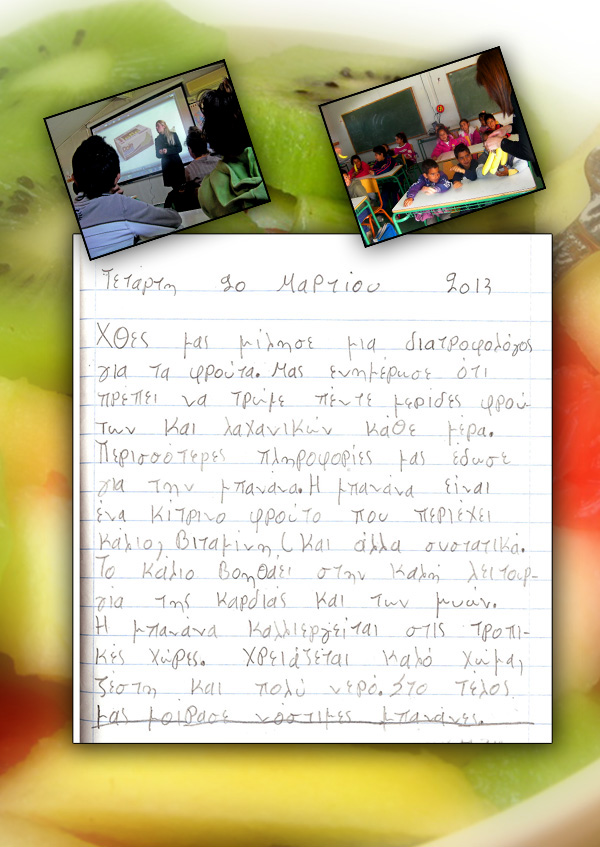 Τετάρτη 20 Μαρτίου 2013
Χθες μας μίλησε μια διατροφολόγος
για τα φρούτα. Μας ενημέρωσε ότι
πρέπει να τρώμε πέντε μερίδες φρού
των και λαχανικών κάθε μέρα.
Περισσότερες πληροφορίες μας έδωσε
για την μπανάνα. Η μπανάνα είναι
ένα κίτρινο φρούτο που περιέχει
κάλιο, βιταμίνη C και άλλα συστατικά.
Το κάλιο βοηθάει στην καλή λειτουρ-
γία της καρδιάς και των μυών.
Η μπανάνα καλλιεργείται στις τροπι-
κές χώρες. Χρειάζεται καλό χώμα,
ζέστη και πολύ νερό. Στο τέλος
μας μοίρασε νόστιμες μπανάνες.